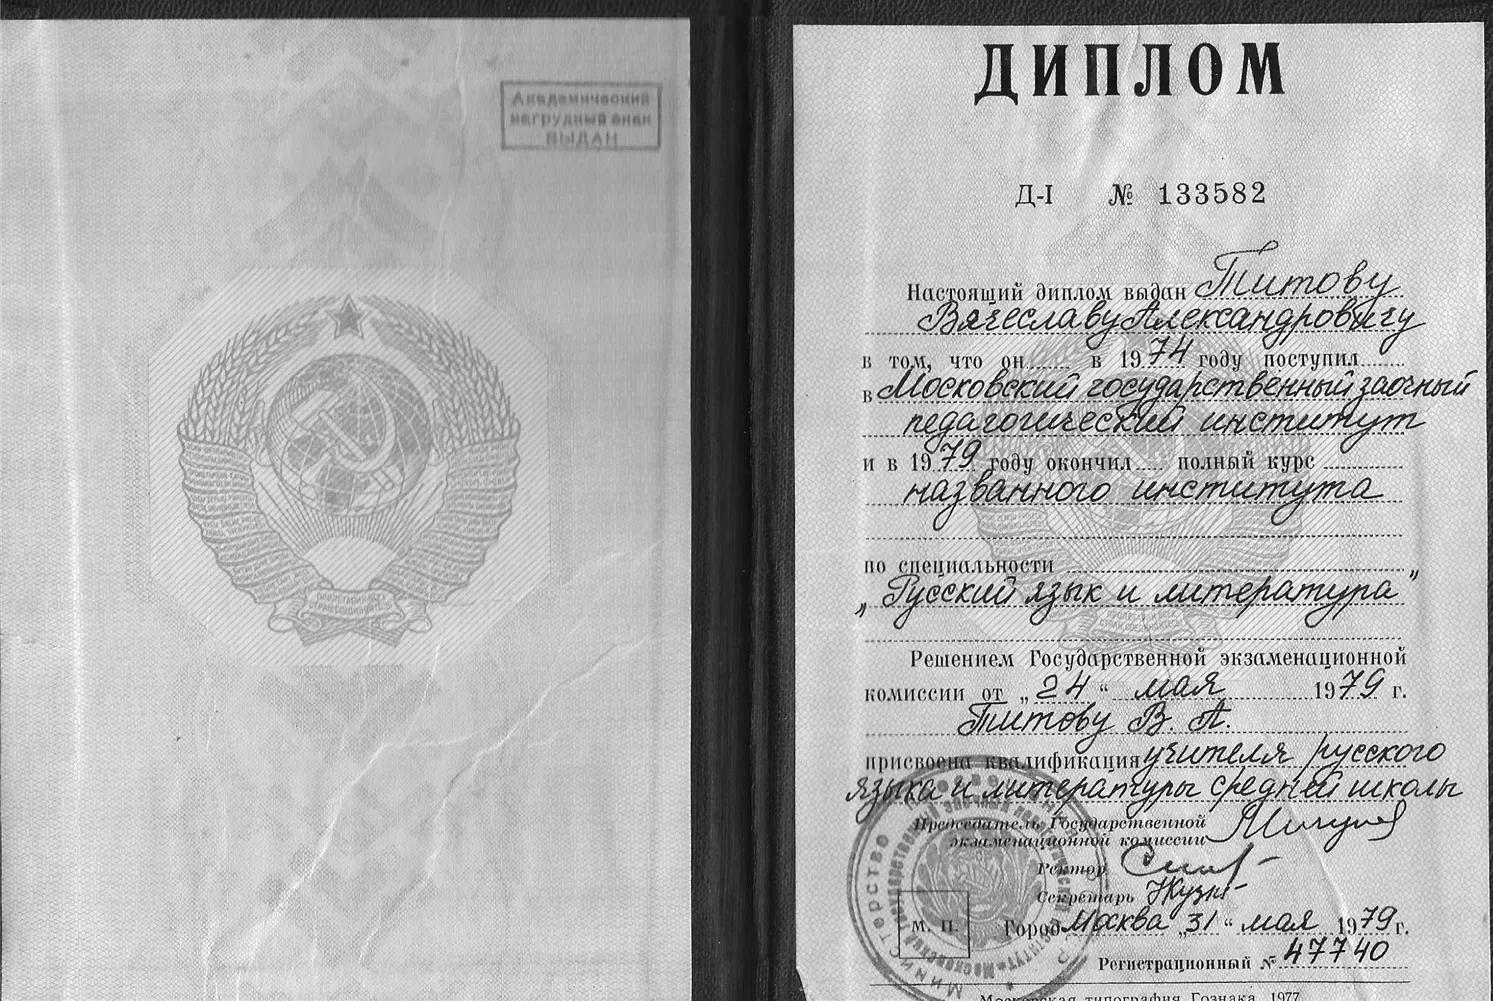 Академический
нагрудный знак
ВЫДАН
ДИПЛОМ
Д-I № 133582
Настоящий диплом выдан Титову
Вячеславу Александровичу
в том, что он в 1974 году поступил
в Московский государственный заочный
педагогический институт
и в 1979 году окончил полный курс
названного института
по специальности
„Русский язык и литература"
Решением Государственной экзаменационной
комиссии от „24“ мая 1979 г.
Титову В. А.
присвоена квалификация учителя русского
языка и литературы средней школы
Председатель Государственной
экзаменационной комиссии
Ректор
Секретарь
М. П.
Город Москва „31“ мая 1979 г.
Регистрационный № 47740
Московская типография Гознака. 1977.